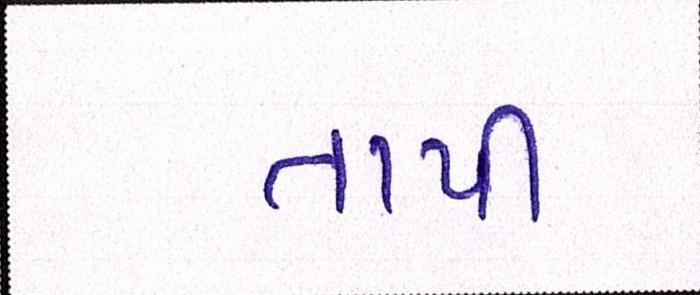 તાપી